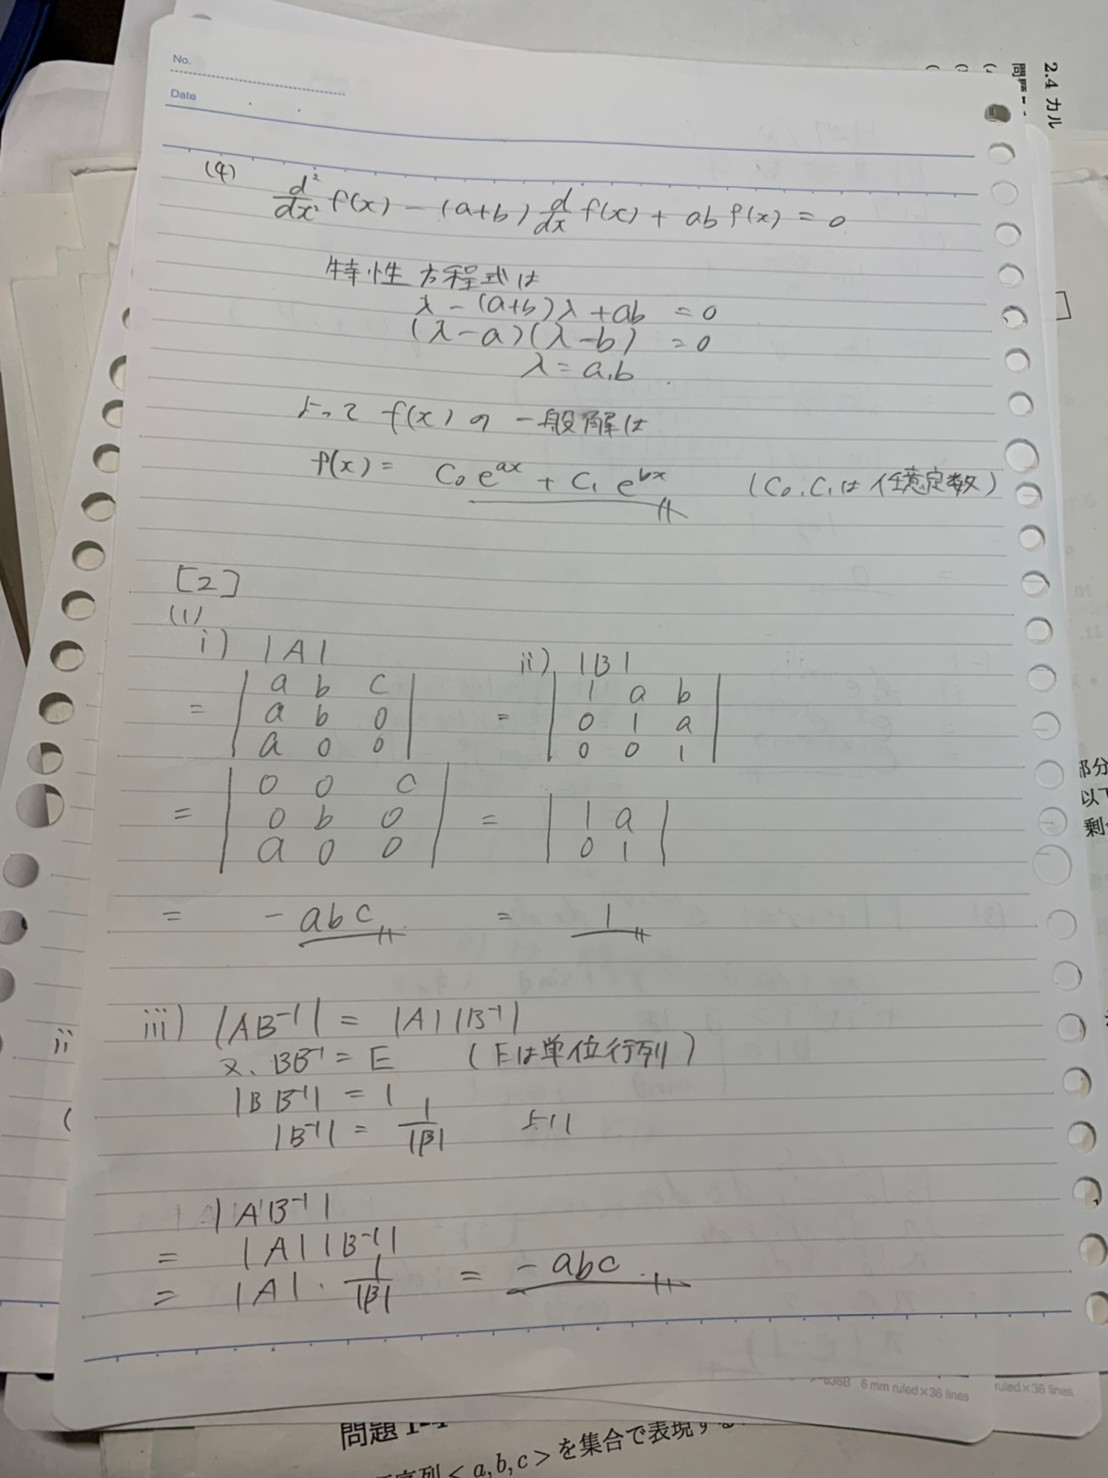 No.
Date
2.4 カル
(4) d²/dx² f(x) - (a+b) d/dx f(x) + ab f(x) = 0
特性方程式は
λ - (a+b)λ + ab = 0
(λ-a)(λ-b) = 0
λ = a,b
よって f(x) の 一般解は
f(x) = C₀ e^{ax} + C₁ e^{bx} (C₀, C₁は任意定数)
[2]
(1)
i) |A| ii) |B|
= | a b c | = | 1 a b |
| a b 0 | | 0 1 a |
| a 0 0 | | 0 0 1 |
= | 0 0 c | = | 1 a |
| 0 b 0 | | 0 1 |
| a 0 0 |
= -abc = 1
iii) |AB⁻¹| = |A||B⁻¹|
又、BB⁻¹ = E (Eは単位行列)
|BB⁻¹| = 1
|B⁻¹| = 1/|B| より
|AB⁻¹|
= |A||B⁻¹|
= |A| · 1/|B| = -abc
部分
以下
剰
ii
6 mm ruled×36 lines
ruled×36 lines
問題 1-1
列 < a, b, c > を集合で表現す